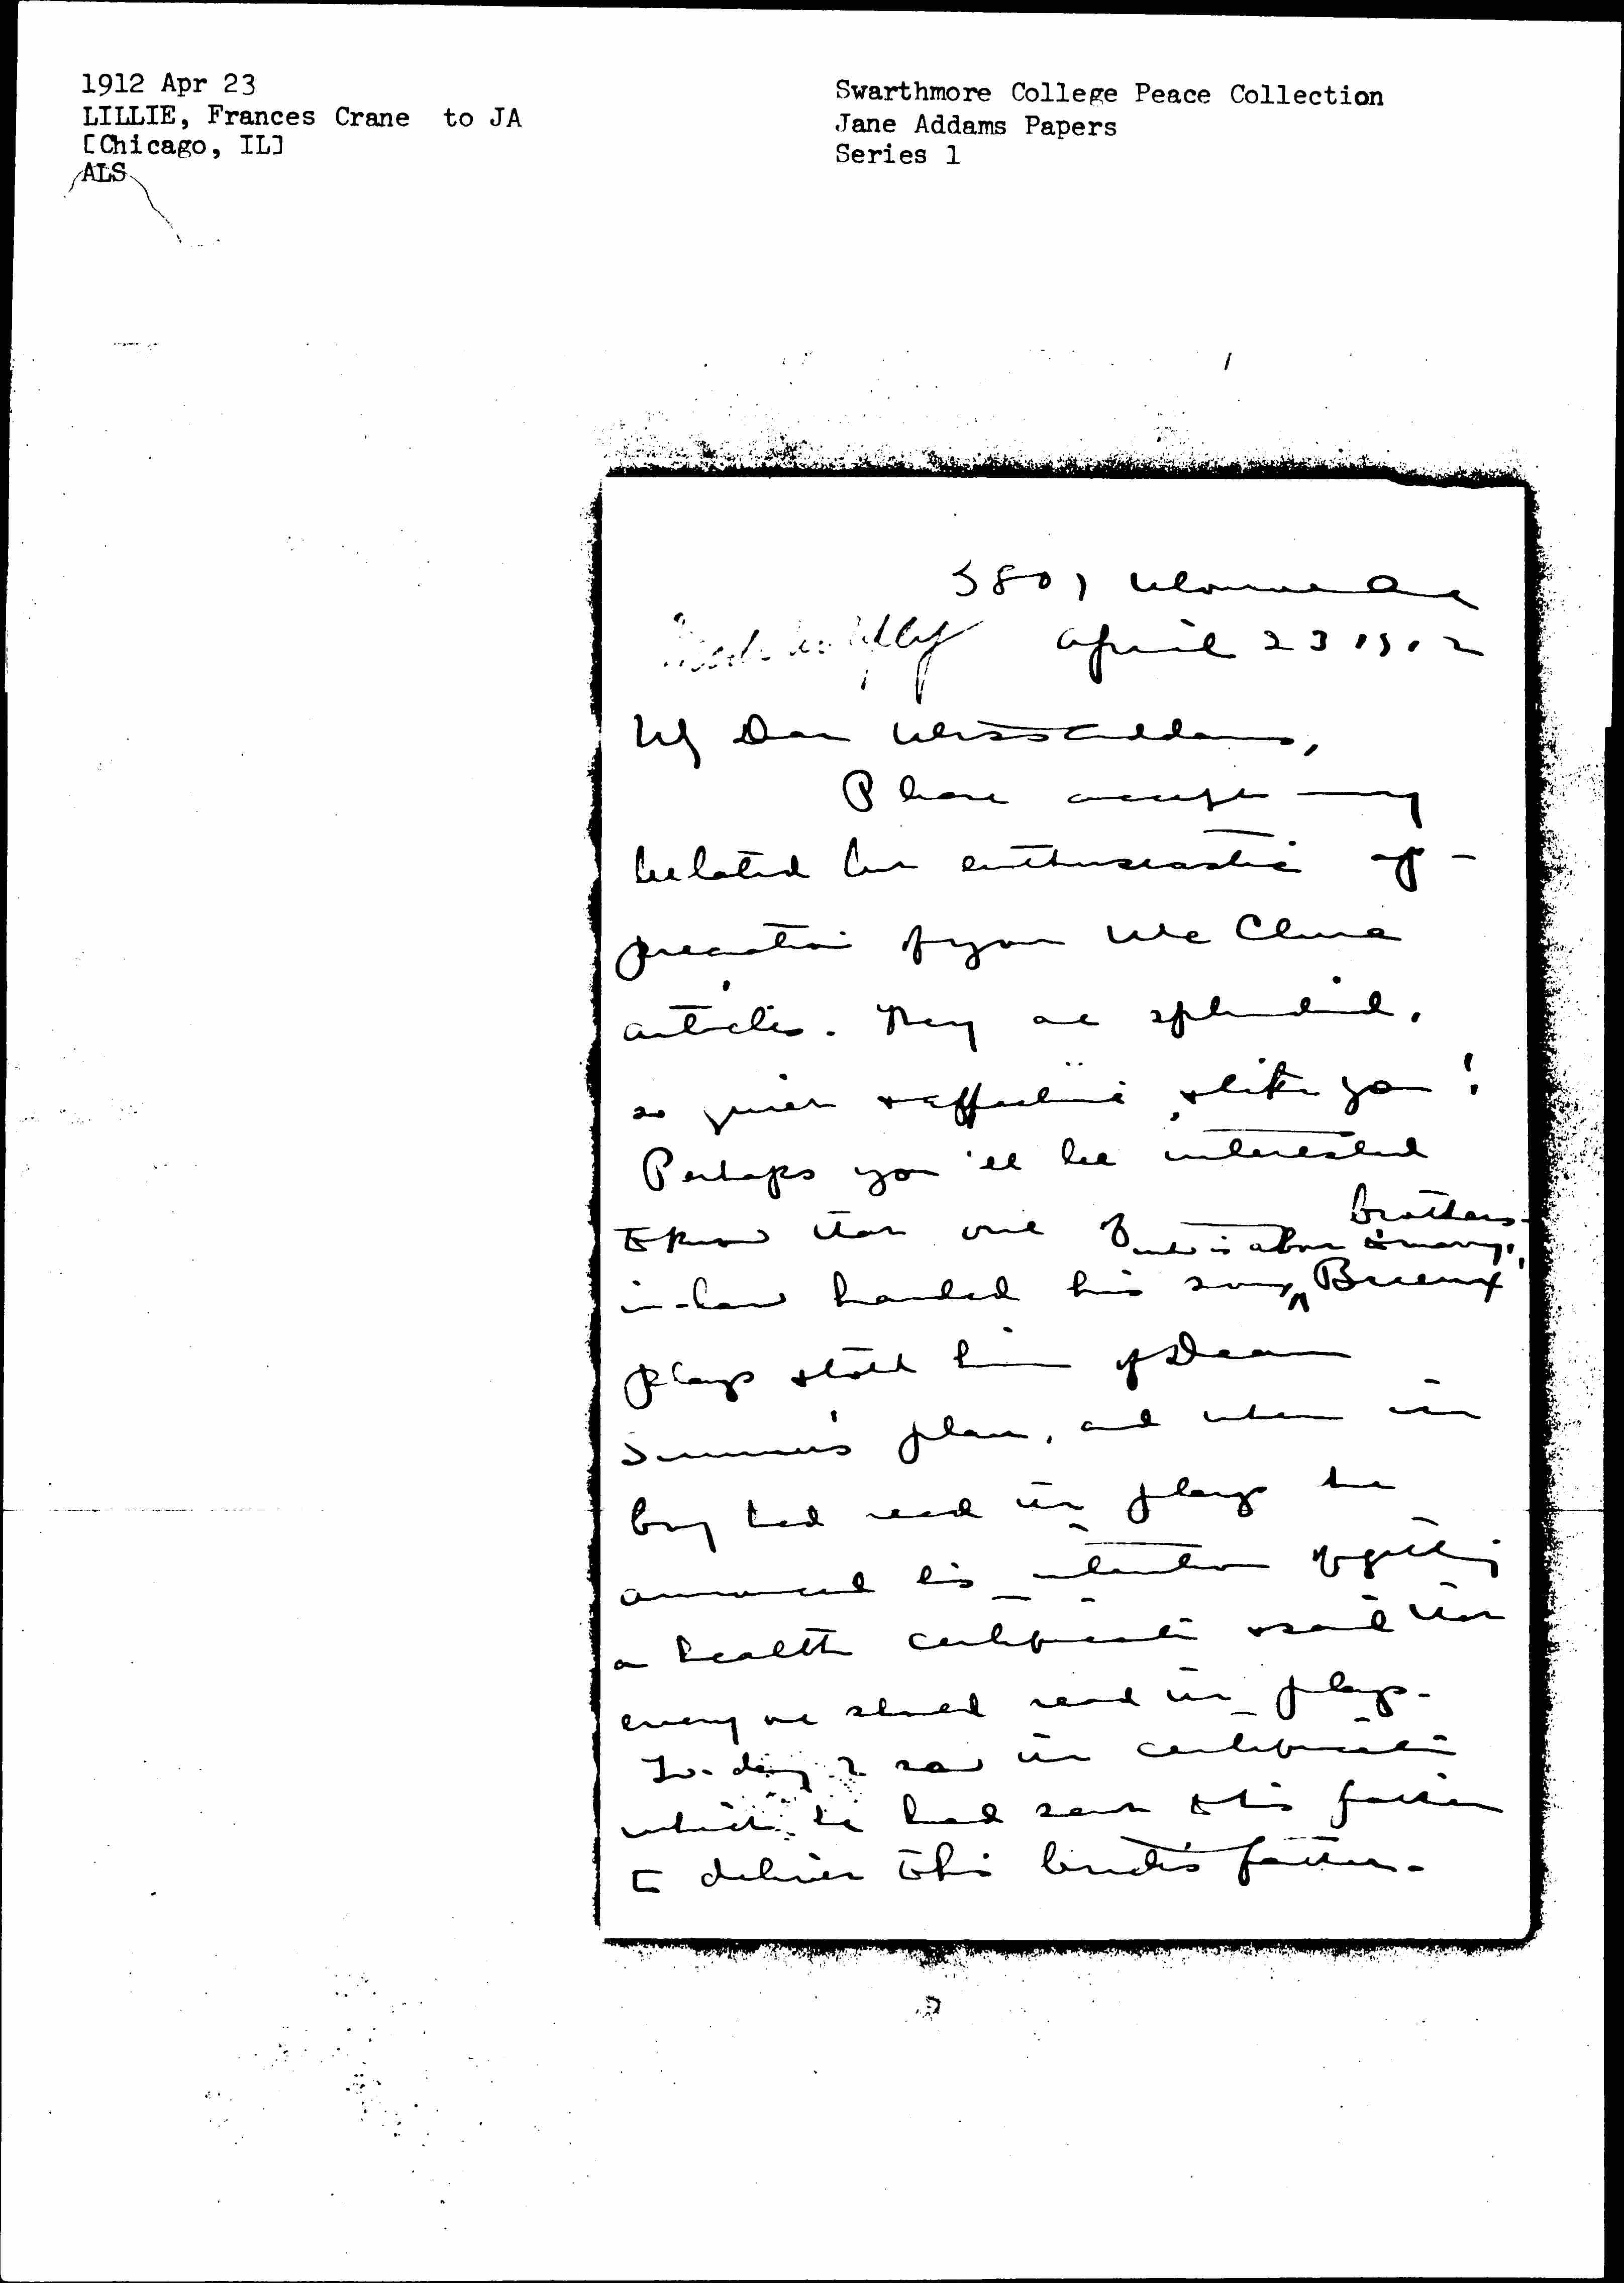 1912 Apr 23
LILLIE, Frances Crane to JA
[Chicago, IL]
ALS
Swarthmore College Peace Collection
Jane Addams Papers
Series 1
1
5801 Monroe Ave
April 23 1912
My Dear Miss Addams,
Please accept my
belated but enthusiastic ap-
preciation of your McClure
articles. They are splendid,
so quiet & effective, & like you!
Perhaps you'll be interested
to know that one of brothers-
in-law handed his son, who is about to marry, Brieux
plays & told him of Dean
Sumner's plan, and when the
boy had read the plays he
announced his intention of getting
a health certificate & said that
every one should read the plays.
To-day I saw the certificate
which he had sent to his father
to deliver to his bride's father.